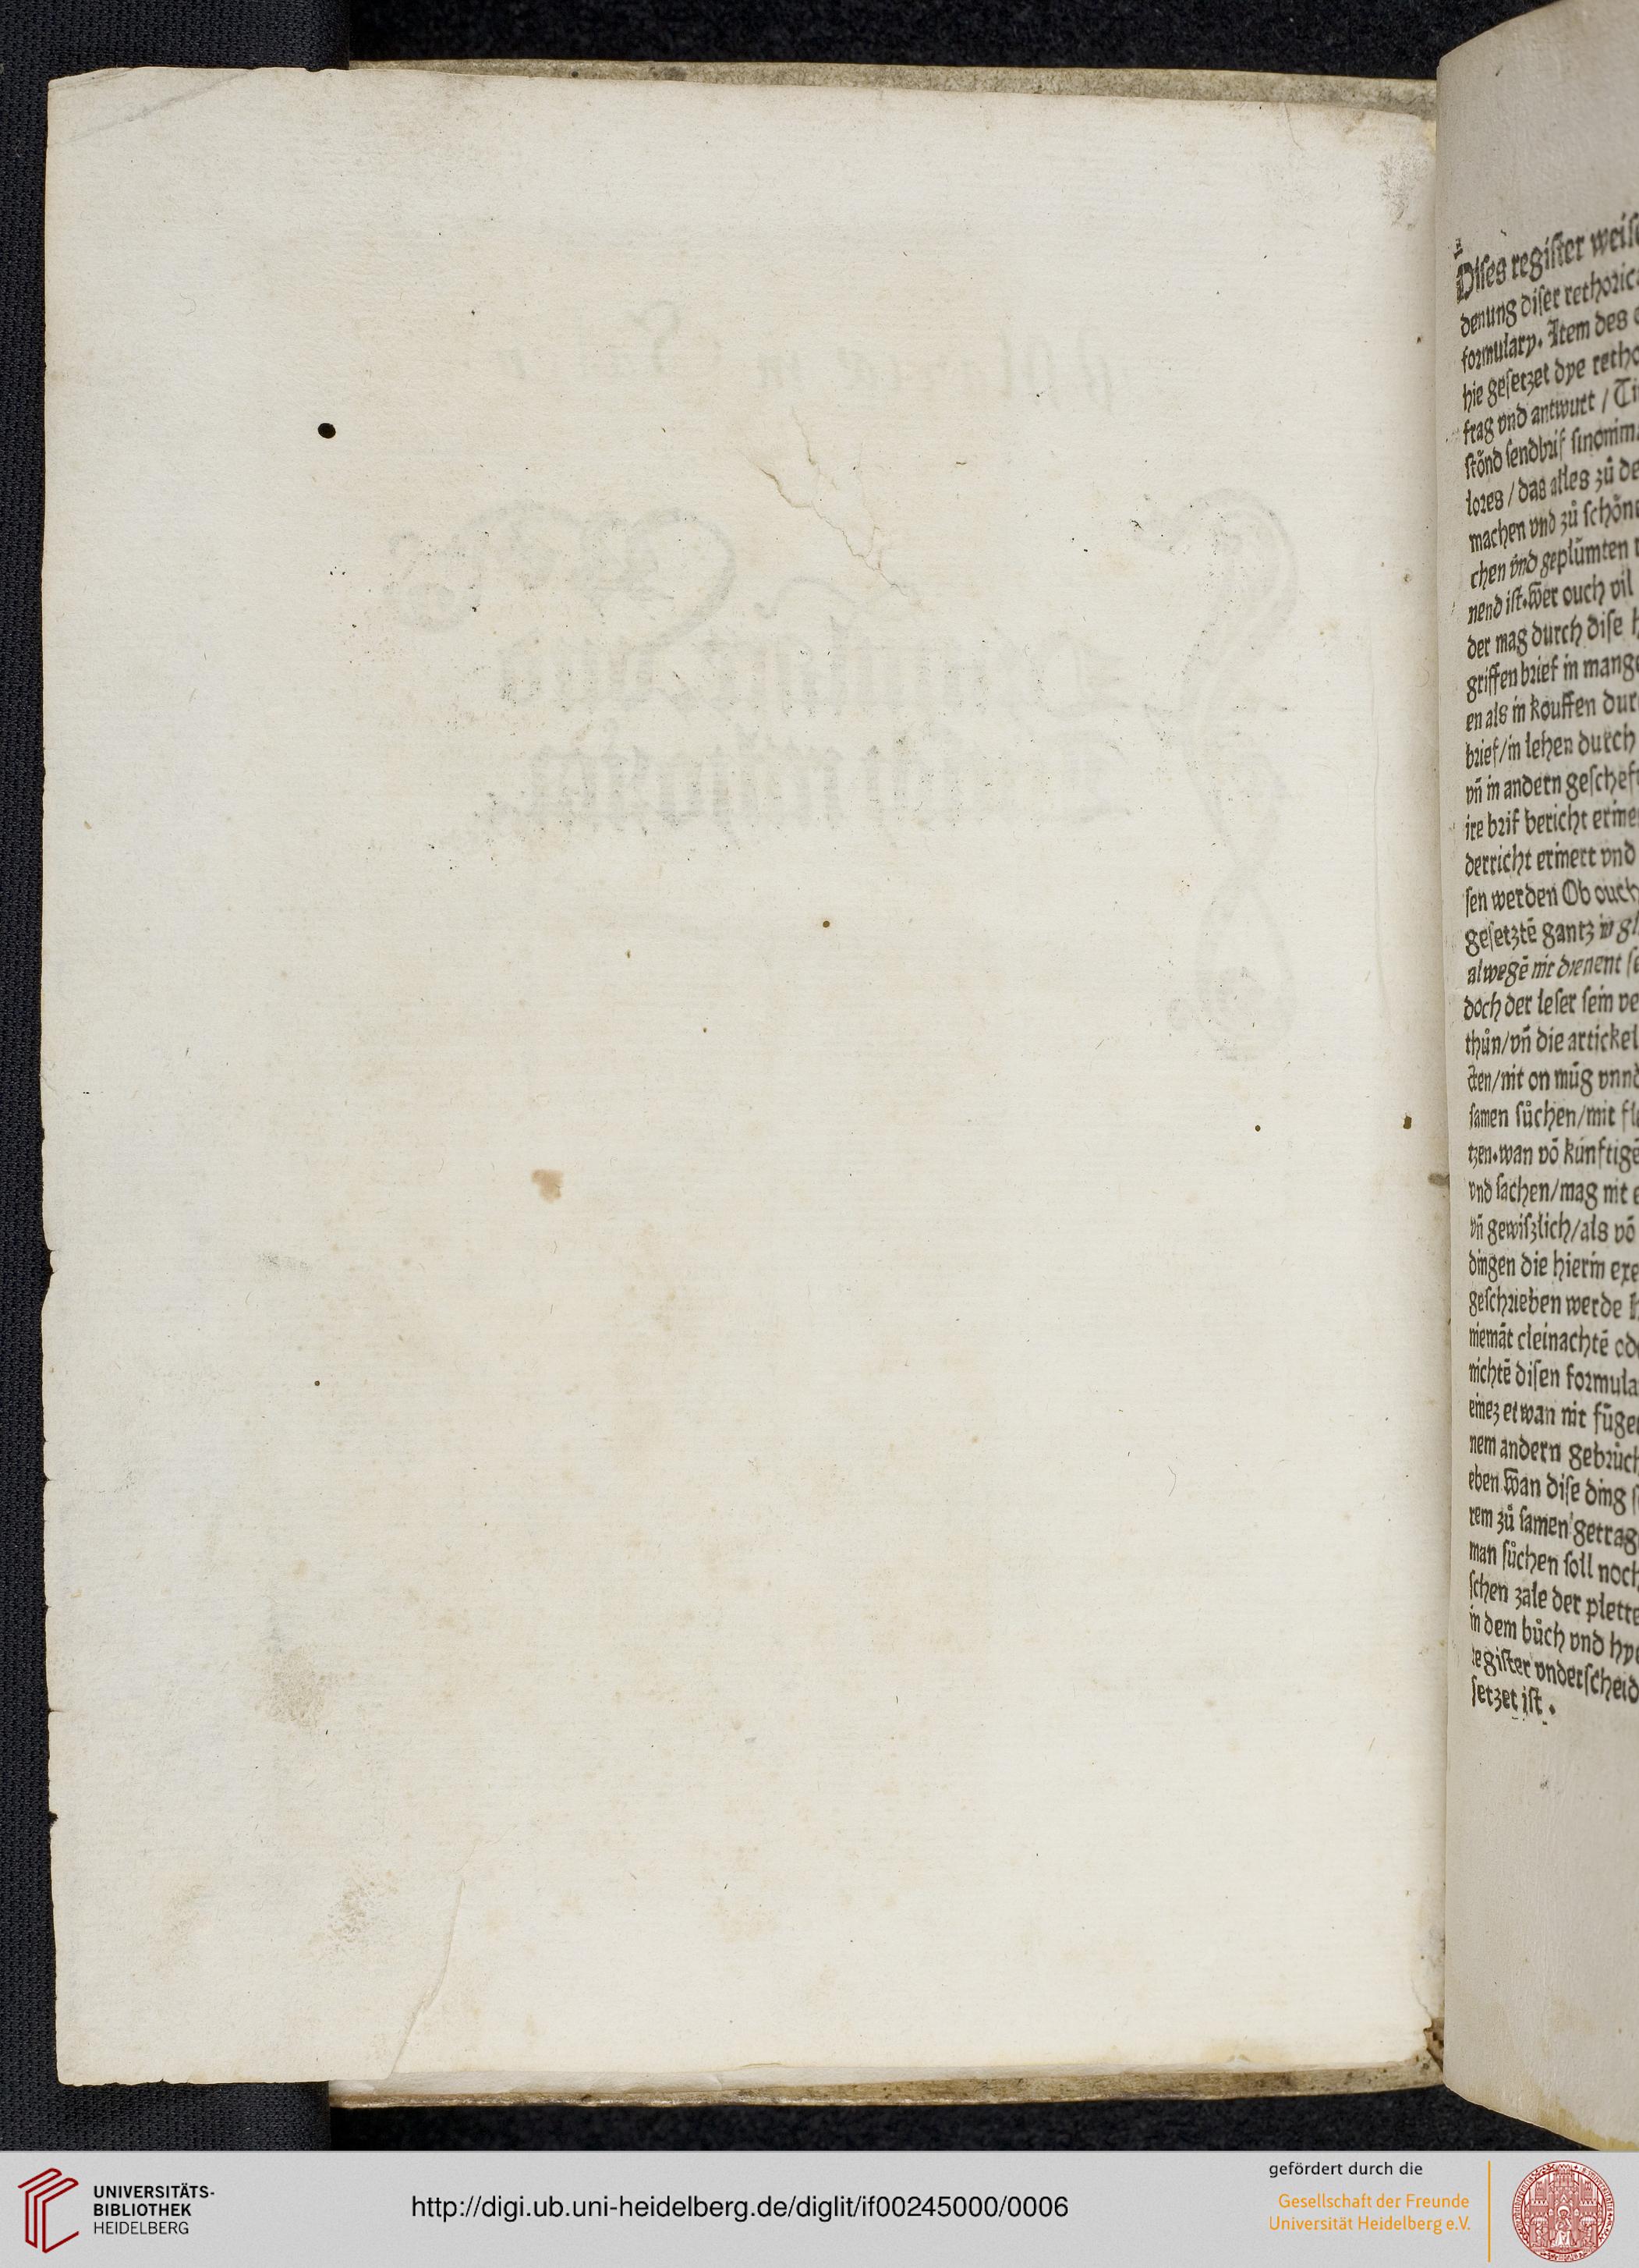 Dises register weiſ
denung diſer rethoric
formulary. Item des
hie geſetzet dye retho
frag vnd antwurt / Ti
ſtönd ſendbrif ſinonim
lores / das alles zů de
machen vnd zů ſchön
chen vnd geplümten
nend iſt. wer ouch vil
der mag durch diſe
griffen brief in mang
en als in kouffen dur
brief/in lehen durch
vñ in andern geſcheft
ire brif bericht erine
derricht erinert vnd
ſen werden Ob ouch
geſetztē gantz
alwegē nit dienent ſe
doch der leſer ſein ve
thůn/vñ die artickel
cten/nit on müg vnnd
ſamen ſůchen/mit fl
tzen. wan vō künftigē
vnd ſachen/mag nit e
vñ gewiſzlich/als vō
dingen die hierin exe
geſchrieben werdē
niemāt cleinachtē od
nichtē diſen formula
einez etwan nit füge
nem andern gebrüch
eben wan diſe ding ſ
rem zů ſamen getrag
man ſůchen ſoll noch
ſchen zale der plette
in dem bůch vnd hye
regiſter vnderſcheid
ſetzet iſt.
UNIVERSITÄTS-
BIBLIOTHEK
HEIDELBERG
http://digi.ub.uni-heidelberg.de/diglit/if00245000/0006
gefördert durch die
Gesellschaft der Freunde
Universität Heidelberg e.V.